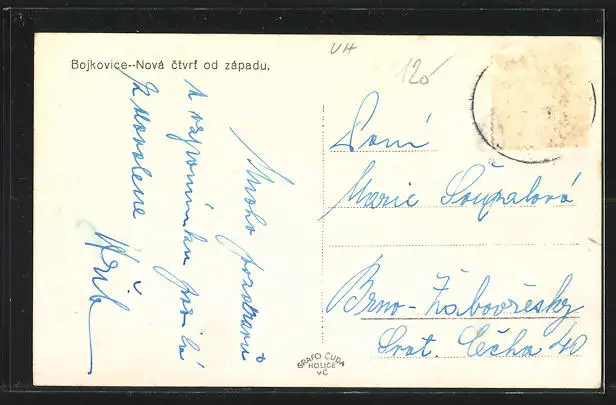 Bojkovice--Nová čtvrť od západu.
VH
120
Mnoho pozdravů
a vzpomínku posílá
z dovolené
Paní
Marie Šoupalová
Brno-Žabovřesky
Svat. Čecha 40
GRAFO ČUDA
HOLICE
VČ